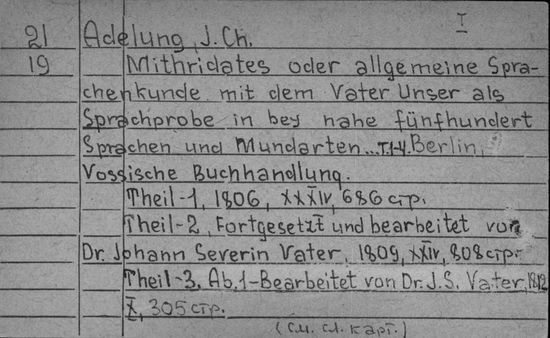 I
21 Adelung, J. Ch.
19 Mithridates oder allgemeine Spra-
chenkunde mit dem Vater Unser als
Sprachprobe in bey nahe fünfhundert
Sprachen und Mundarten... T.1-4. Berlin,
Vossische Buchhandlung.
Theil-1, 1806, XXXIV, 686 стр.
Theil-2, Fortgesetzt und bearbeitet von
Dr. Johann Severin Vater, 1809, XXIV, 808 стр.
Theil-3, Ab.1-Bearbeitet von Dr. J.S. Vater, 1812
X, 305 стр.
(См. сл. карт.)